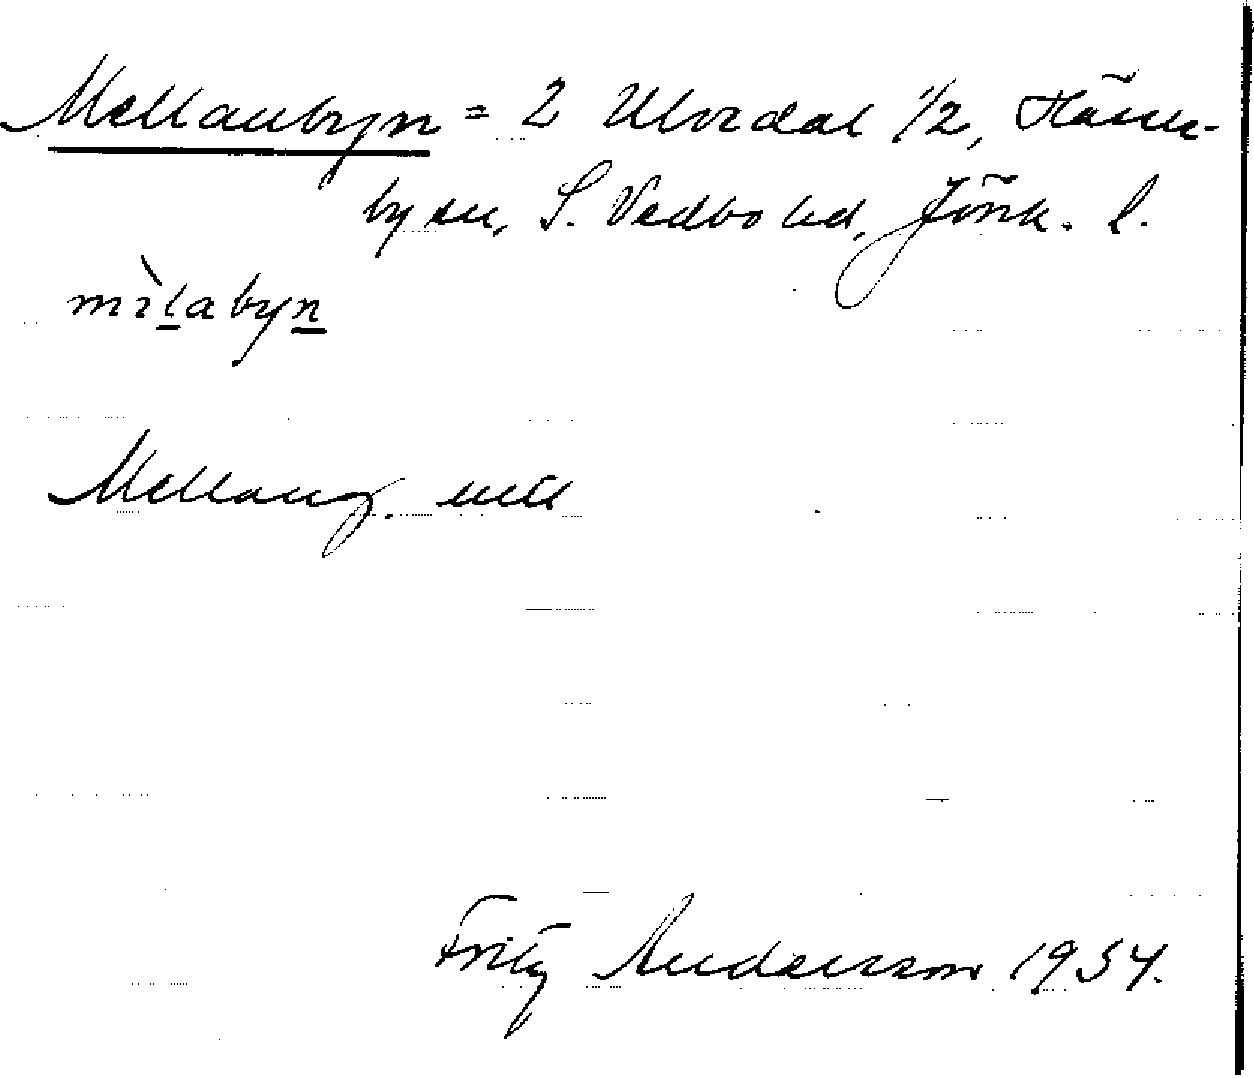 Mellanbyn = 2 Ulvedal 1/2, Hässle-
byen, S. Vedbo hd, Jönk. l.
mìlabyn
Mellang.
Fritz Andersson 1934.